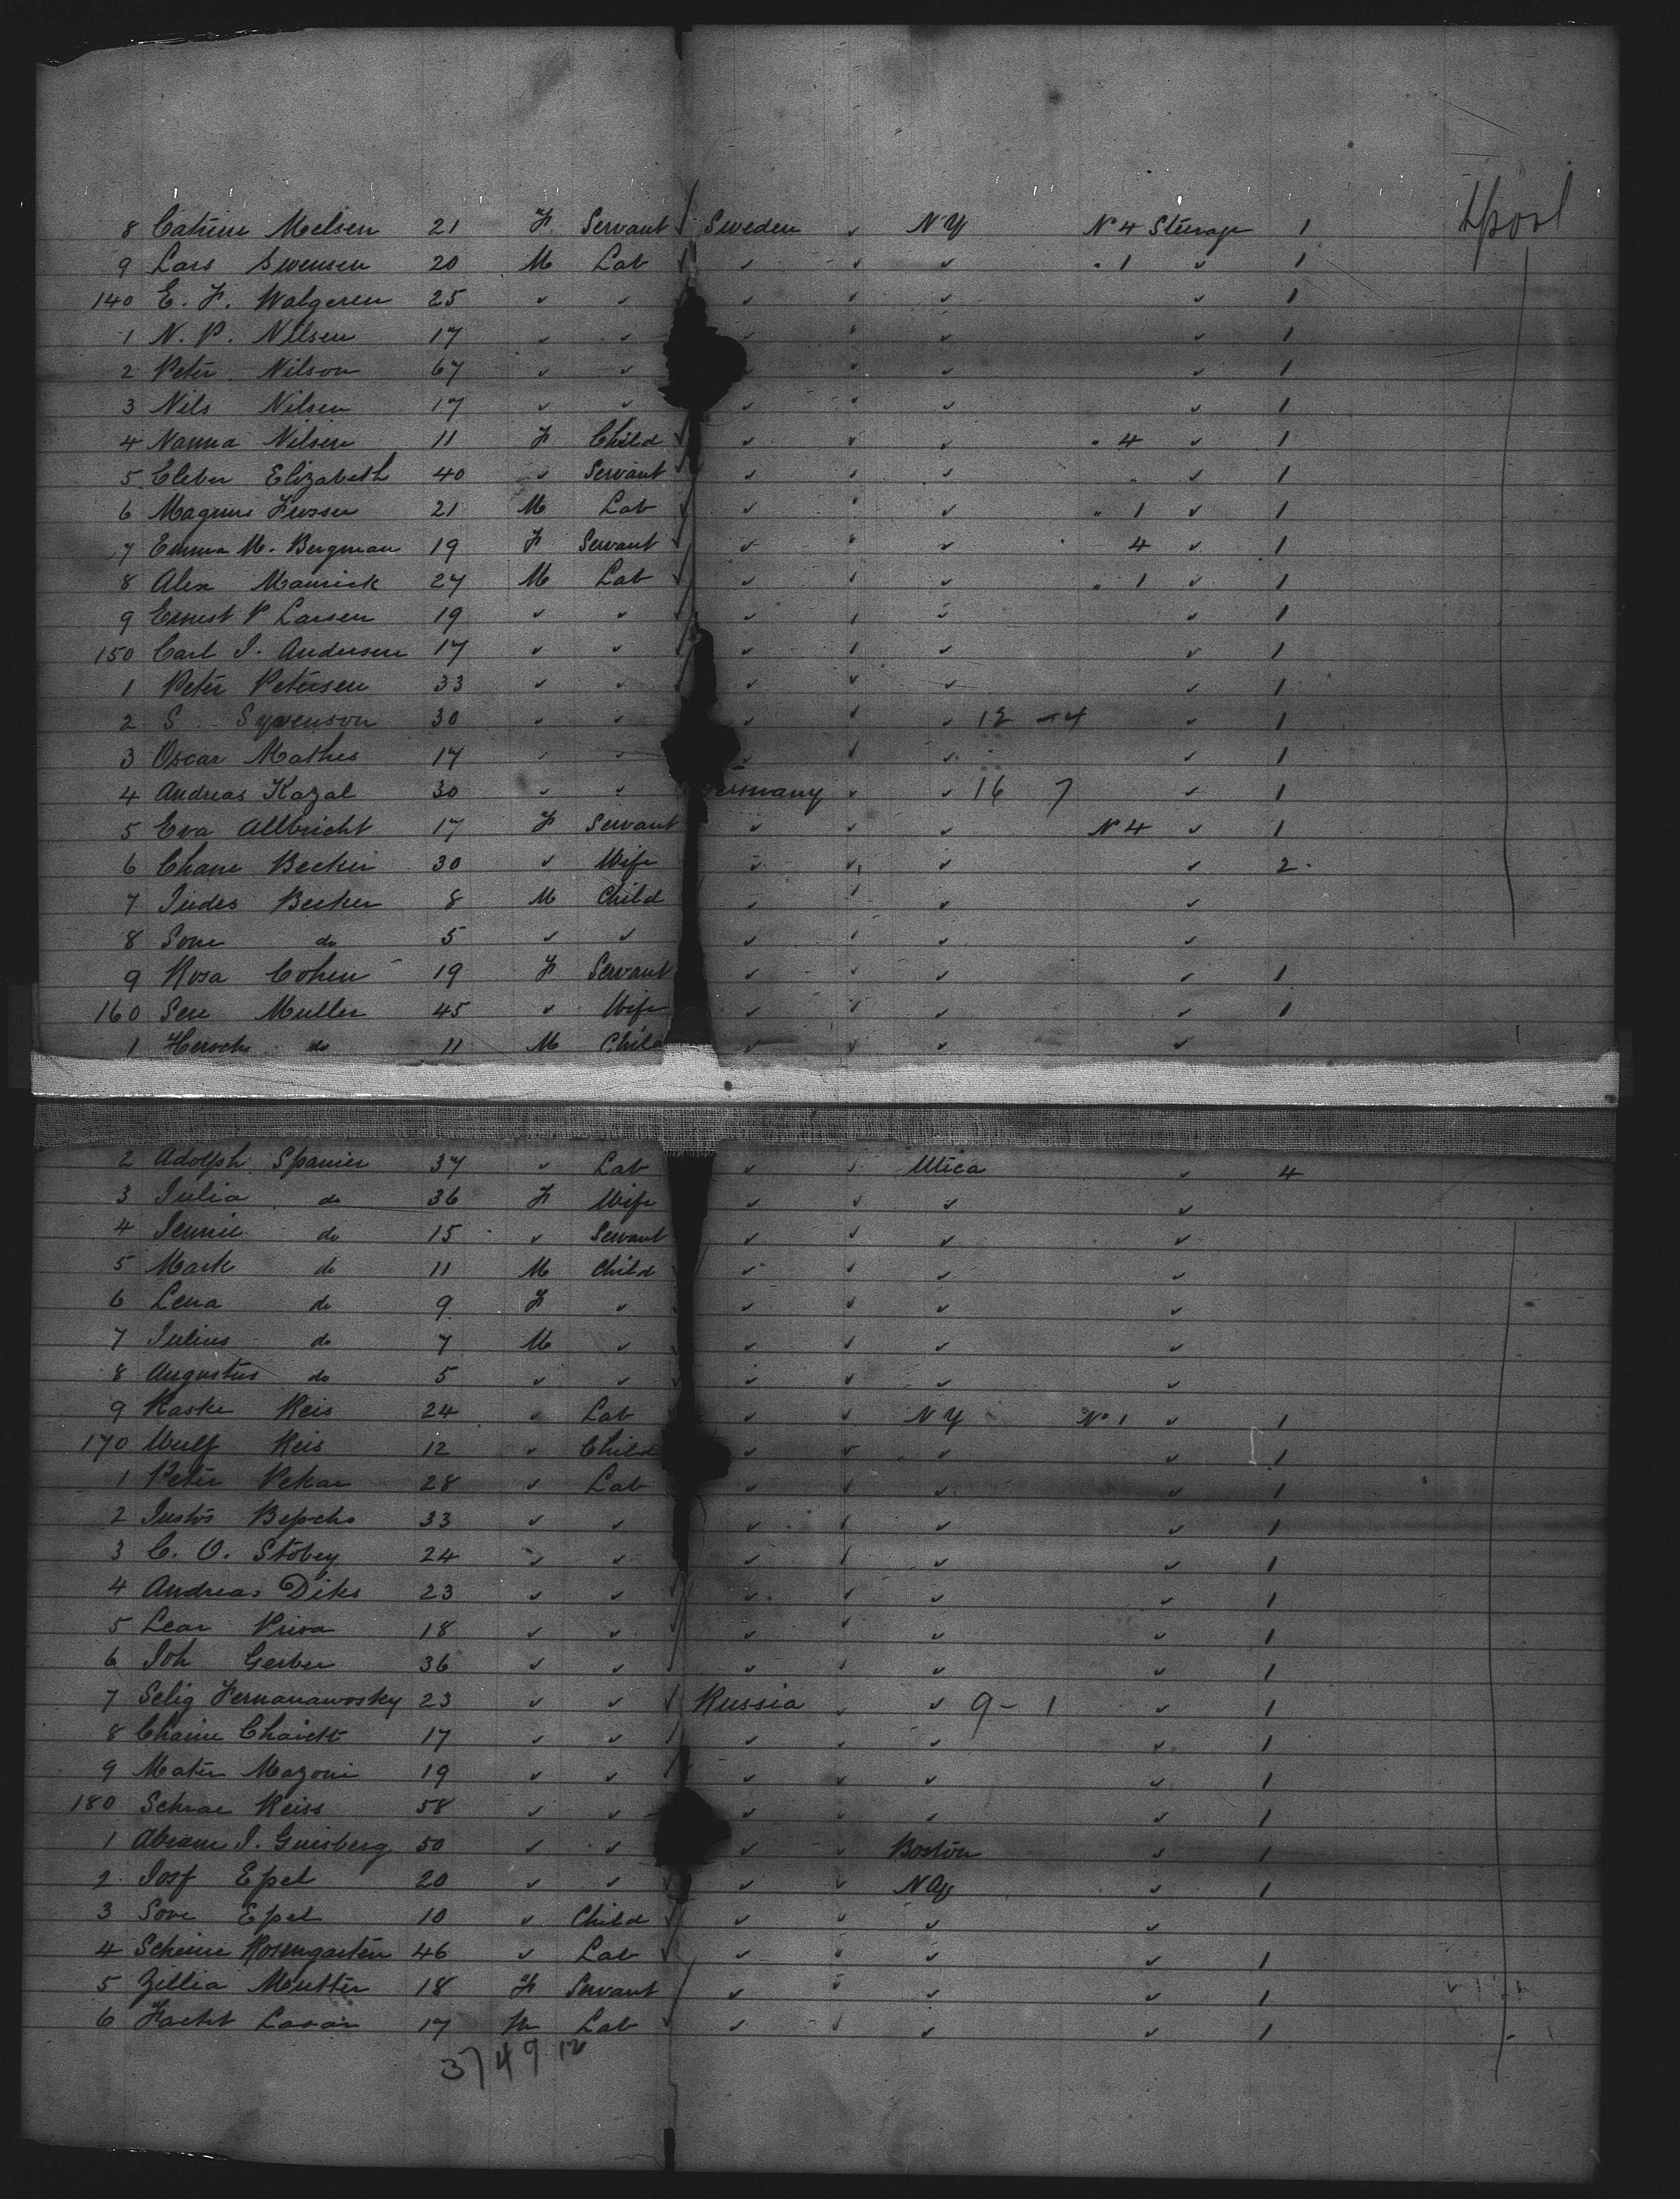 8 Catrine Melsen 21 F Servant ✓ Sweden ✓ NY N° 4 Steerage 1 Lpool
9 Lars Swensen 20 M Lab ✓ ✓ ✓ ✓ " 1 ✓ 1
140 E. F. Walgeren 25 ✓ ✓ ✓ ✓ ✓ ✓ 1
1 N. P. Nilsen 17 ✓ ✓ ✓ ✓ ✓ ✓ 1
2 Peter Nilson 67 ✓ ✓ ✓ ✓ ✓ ✓ 1
3 Nils Nilsen 17 ✓ ✓ ✓ ✓ ✓ ✓ 1
4 Nanna Nilsen 11 F Child ✓ ✓ ✓ ✓ " 4 ✓ 1
5 Eleber Elizabeth 40 ✓ Servant ✓ ✓ ✓ ✓ " ✓ 1
6 Magnus 21 M Lab ✓ ✓ ✓ ✓ " 1 ✓ 1
7 Emma M. Bergman 19 F Servant ✓ ✓ ✓ ✓ 4 ✓ 1
8 Alex Maurick 27 M Lab ✓ ✓ ✓ ✓ " 1 ✓ 1
9 Ernest P Larsen 19 ✓ ✓ ✓ ✓ ✓ ✓ ✓ 1
150 Carl I. Andersen 17 ✓ ✓ ✓ ✓ ✓ ✓ ✓ 1
1 Peter Petersen 33 ✓ ✓ ✓ ✓ ✓ ✓ ✓ 1
2 S. Sywenson 30 ✓ ✓ ✓ ✓ ✓ 12 - 4 ✓ 1
3 Oscar Mathes 17 ✓ ✓ ✓ ✓ ✓ ✓ 1
4 Andreas Kazal 30 ✓ ✓ ermany ✓ ✓ 16 7 ✓ 1
5 Eva Allbricht 17 F Servant ✓ ✓ ✓ N° 4 ✓ 1
6 Chane Becker 30 ✓ Wife ✓ ✓ ✓ ✓ 2
7 Judes Becker 8 M Child ✓ ✓ ✓ ✓
8 Sone do 5 ✓ ✓ ✓ ✓ ✓ ✓
9 Rosa Cohen 19 F Servant ✓ ✓ ✓ ✓ 1
160 Sere Muller 45 ✓ Wife ✓ ✓ ✓ ✓ 1
1 Hersch do 11 M Child ✓ ✓ ✓ ✓
2 Adolph Spanier 37 ✓ Lab ✓ ✓ Utica ✓ 4
3 Julia do 36 F Wife ✓ ✓ ✓ ✓
4 Jennie do 15 ✓ Servant ✓ ✓ ✓ ✓
5 Mark do 11 M Child ✓ ✓ ✓ ✓
6 Lena do 9 F ✓ ✓ ✓ ✓ ✓
7 Julius do 7 M ✓ ✓ ✓ ✓ ✓
8 Augustus do 5 ✓ ✓ ✓ ✓ ✓ ✓
9 Kaske Reis 24 ✓ Lab ✓ ✓ NY N° 1 ✓ 1
170 Wulf Reis 12 ✓ Child ✓ ✓ ✓ ✓ 1
1 Peter Pekar 28 ✓ Lab ✓ ✓ ✓ ✓ 1
2 Justus 33 ✓ ✓ ✓ ✓ ✓ ✓ 1
3 C. O. Stobey 24 ✓ ✓ ✓ ✓ ✓ ✓ 1
4 Andreas Diks 23 ✓ ✓ ✓ ✓ ✓ ✓ ✓ 1
5 Lear 18 ✓ ✓ ✓ ✓ ✓ ✓ ✓ 1
6 Joh Gerber 36 ✓ ✓ ✓ ✓ ✓ ✓ 1
7 Selig Fernanawosky 23 ✓ ✓ ✓ Russia ✓ ✓ 9 - 1 ✓ 1
8 Chaim Chaickt 17 ✓ ✓ ✓ ✓ ✓ ✓ ✓ 1
9 Mater Mazoni 19 ✓ ✓ ✓ ✓ ✓ ✓ ✓ 1
180 Schrae Reiss 58 ✓ ✓ ✓ ✓ ✓ ✓ 1
1 Abram I. Guisberg 50 ✓ ✓ ✓ ✓ Boston ✓ 1
2 Josf Epel 20 ✓ ✓ ✓ ✓ ✓ NY ✓ 1
3 Sove Epel 10 ✓ Child ✓ ✓ ✓ ✓ ✓
4 Scheine Rosengarten 46 ✓ Lab ✓ ✓ ✓ ✓ ✓ 1
5 Zillia Mutter 18 F Servant ✓ ✓ ✓ ✓ ✓ 1
6 Facht Lasar 17 M Lab ✓ ✓ ✓ ✓ ✓ 1
37 49 12